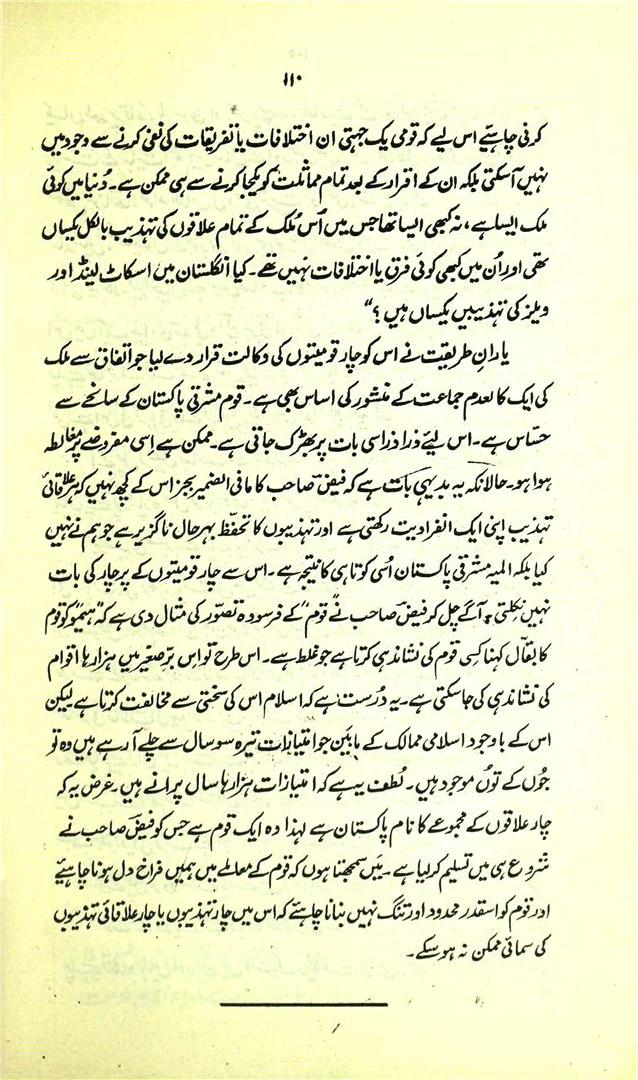 ۱۱۰
کرنی چاہئے اس لیے کہ قومی یک جہتی ان اختلافات یا تفریقات کی نفی کرنے سے وجود میں
نہیں آسکتی بلکہ ان کے اقرار کے بعد تمام مماثلت کو یکجا کرنے سے ہی ممکن ہے۔ دُنیا میں کوئی
ملک ایسا ہے، نہ کبھی ایسا تھا جس میں اُس مُلک کے تمام علاقوں کی تہذیب بالکل یکساں
تھی اور اُن میں کبھی کوئی فرق یا اختلافات نہیں تھے۔ کیا انگلستان میں اسکاٹ لینڈ اور
ویلز کی تہذیبیں یکساں ہیں؟“
یارانِ طریقت نے اس کو چار قومیتوں کی وکالت قرار دے لیا جو اتفاق سے ملک
کی ایک کالعدم جماعت کے منشور کی اساس بھی ہے۔ قوم مشرقی پاکستان کے سانحے سے
حسّاس ہے۔ اس لیئے ذرا ذرا سی بات پر بھڑک جاتی ہے۔ ممکن ہے اِسی مفروضے پر مغالطہ
ہوا ہو۔ حالانکہ یہ بدیہی بات ہے کہ فیض صاحب کا مافی الضمیر بجز اس کے کچھ نہیں کہ ہر علاقائی
تہذیب اپنی ایک انفرادیت رکھتی ہے اور تہذیبوں کا تحفّظ بہرحال ناگزیر ہے جو ہم نے نہیں
کیا بلکہ المیہ مشرقی پاکستان اُسی کوتاہی کا نتیجہ ہے۔ اس سے چار قومیتوں کے پرچار کی بات
نہیں نکلتی۔ آگے چل کر فیض صاحب نے ”قوم“ کے فرسودہ تصوّر کی مثال دی ہے کہ ”ہیمو“ کو قوم
کا بقّال کہنا کسِی قوم کی نشاندہی کرتا ہے جو غلط ہے۔ اس طرح تو اس برِّصغیر میں ہزارہا اقوام
کی نشاندہی کی جاسکتی ہے۔ یہ دُرست ہے کہ اسلام اس کی سختی سے مخالفت کرتا ہے لیکن
اس کے باوجود اسلامی ممالک کے مابین جو امتیازات تیرہ سو سال سے چلے آرہے ہیں وہ تو
جُوں کے توُں موجود ہیں۔ لُطف یہ ہے کہ امتیازات ہزارہا سال پرانے ہیں۔ غرض یہ کہ
چار علاقوں کے مجموعے کا نام پاکستان ہے لہذا وہ ایک قوم ہے جس کو فیض صاحب نے
شروع ہی میں تسلیم کرلیا ہے۔ میَں سمجھتا ہوں کہ قوم کے معاملے میں ہمیں فراخ دل ہونا چاہیئے
اور قوم کو اسقدر محدود اور تنگ نہیں بنانا چاہئے کہ اس میں چار تہذیبوں یا چار علاقائی تہذیبوں
کی سمائی ممکن نہ ہوسکے۔